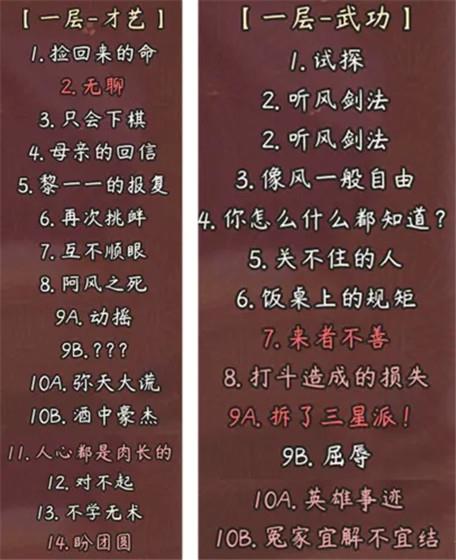 【一层-才艺】
1.捡回来的命
2.无聊
3.只会下棋
4.母亲的回信
5.黎一一的报复
6.再次挑衅
7.互不顺眼
8.阿风之死
9A.动摇
9B.???
10A.弥天大谎
10B.酒中豪杰
11.人心都是肉长的
12.对不起
13.不学无术
14.盼团圆
【一层-武功】
1.试探
2.听风剑法
2.听风剑法
3.像风一般自由
4.你怎么什么都知道?
5.关不住的人
6.饭桌上的规矩
7.来者不善
8.打斗造成的损失
9A.拆了三星派!
9B.屈辱
10A.英雄事迹
10B.冤家宜解不宜结